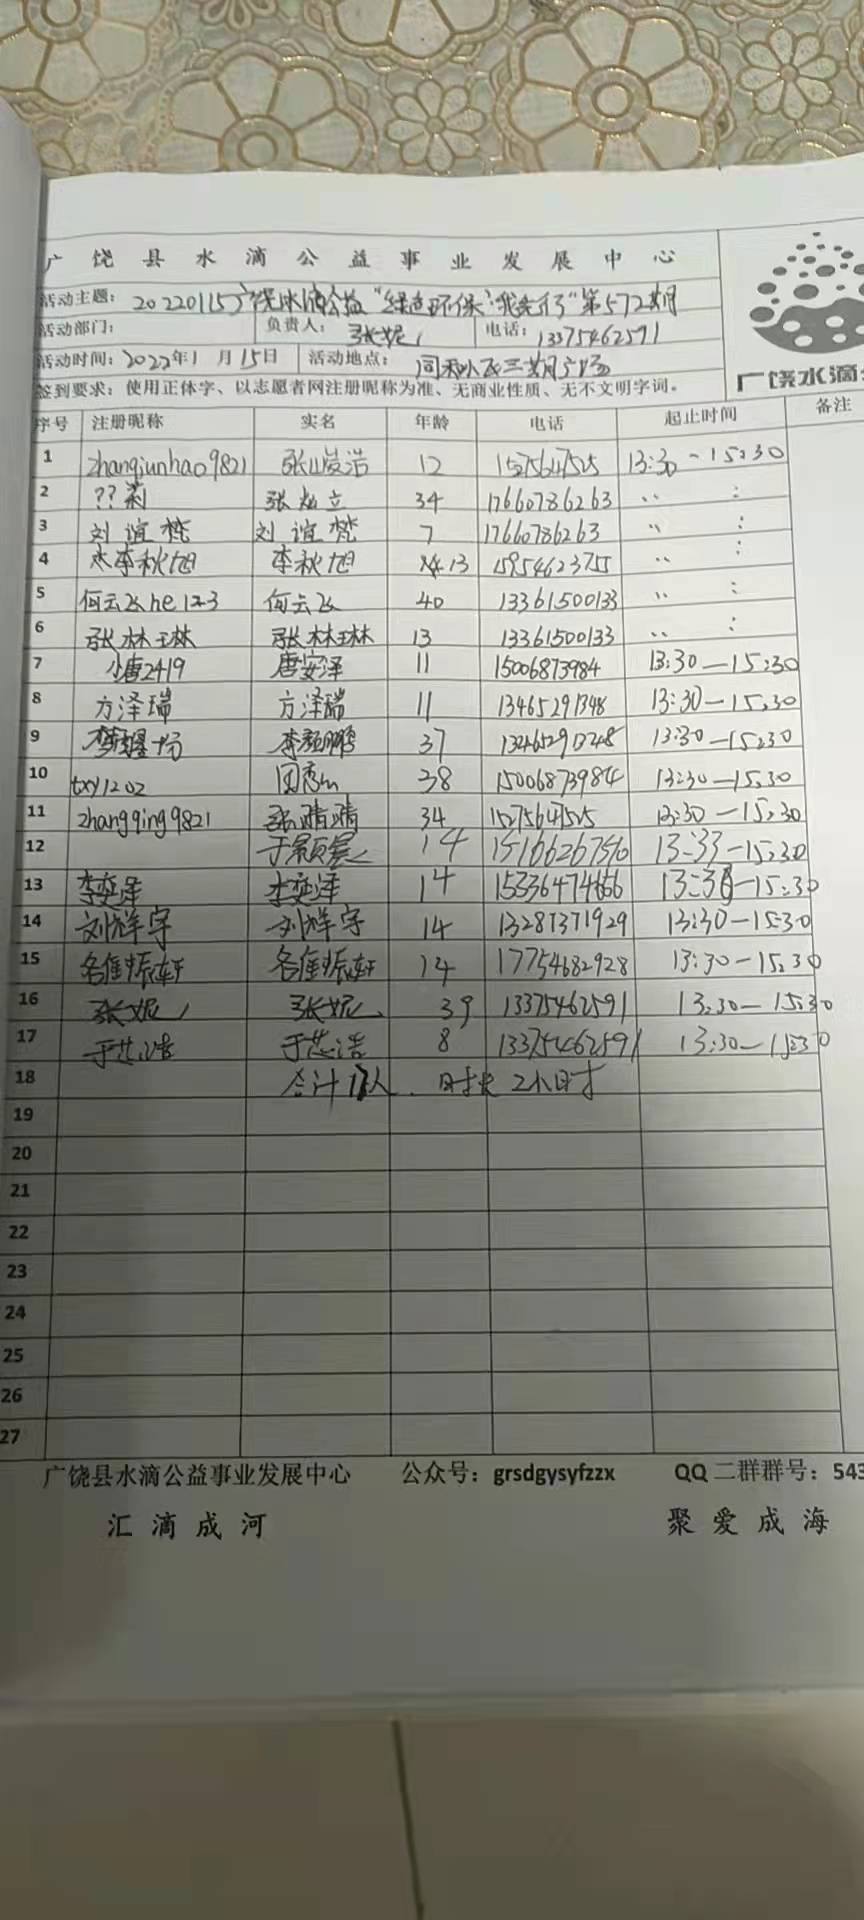 广饶县水滴公益事业发展中心
活动主题：20220115广饶水滴公益“绿色环保，我先行”第572期
活动部门： 负责人：张妮 电话：13375462591
活动时间：2022年1月15日 活动地点：同和小区三期广场
签到要求：使用正体字、以志愿者网注册昵称为准、无商业性质、无不文明字词。
广饶水滴
序号 注册昵称 实名 年龄 电话 起止时间 备注
1 zhangjunhao9821 张峻浩 12 15275647525 13:30-15:30
2 ??莉 张 立 34 17660786263 〃 :
3 刘谊梵 刘谊梵 7 17660786263 〃 :
4 李秋旭 李秋旭 13 15954623755 〃 :
5 何云飞he123 何云飞 40 13361500133 〃 :
6 张林琳 张林琳 13 13361500133 〃 :
7 小唐2419 唐安泽 11 15006873984 13:30-15:30
8 方泽瑞 方泽瑞 11 13465291348 13:30-15:30
9 37 13:30-15:30
10 txy1202 38 15006873984 13:30-15:30
11 zhangqing9821 张晴晴 34 15275647525 13:30-15:30
12 14 13:33-15:30
13 李奕泽 李奕泽 14 15336474666 -15:30
14 刘祥宇 刘祥宇 14 13287371929 13:30-15:30
15 振轩 振轩 14 17754682928 13:30-15:30
16 张妮 张妮 39 13375462591 13:30-15:30
17 于芯浩 于芯浩 8 13375462591 13:30-15:30
18 合计17人. 时长2小时
19
20
21
22
23
24
25
26
27
广饶县水滴公益事业发展中心 公众号：grsdgysyfzzx QQ二群群号：543
汇滴成河 聚爱成海